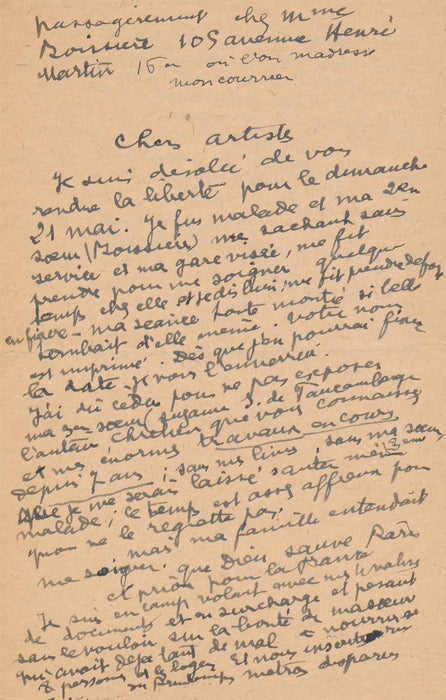 passagèrement chez Mme
Boissière 105 avenue Henri
Martin 16en où l'on m'adresse
mon courrier
Chers artistes
Je suis désolée de vous
rendre la liberté pour le dimanche
21 mai. Je fus malade et ma 2en
sœur (Boissière) me sachant sans
service et ma gare visée, me fit
prendre pour me soigner quelque
temps chez elle et
en fièvre - ma séance toute montée si belle
tombait d'elle même. Votre nom
est imprimé. Dès que j'en pourrai fixer
la date je vous l'enverrai.
J'ai dû céder pour ne pas exposer
ma sœur (Suzanne J. de
l'auteur Chrétien que vous connaissez
et mes énormes travaux en cours
depuis 7 ans ; sans mes livres, sans ma sœur
que je me serais laissé sauter même
malade ; le temps est assez affreux pour
qu'on ne le regrette pas ;
mais ma famille entendait
me soigner. que Dieu sauve Paris
et prion pour la France
Je suis en camp volant avec mes valises
de documents et en surcharge et pesant
sans le vouloir sur la bonté de ma sœur
qui avait déjà tant de mal à nourrir
personnes et les loger. Et nous
mètres d'